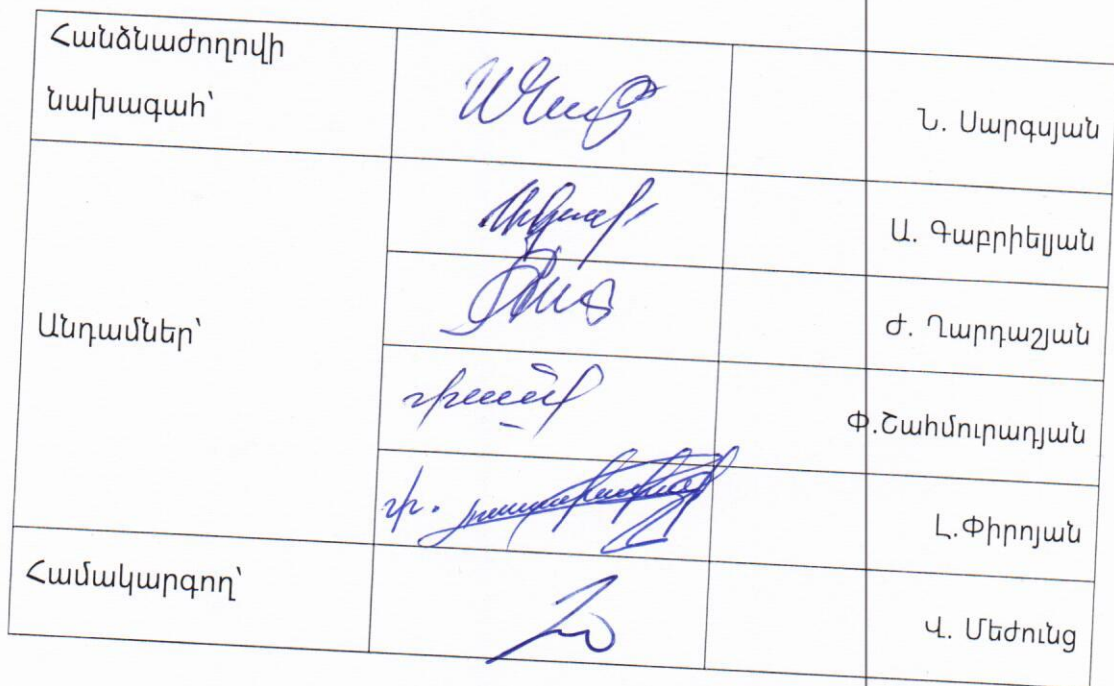 Հանձնաժողովի
նախագահ՝
Ն. Սարգսյան
Անդամներ՝
Ա. Գաբրիելյան
Ժ. Ղարդաշյան
Փ.Շահմուրադյան
Լ.Փիրոյան
Համակարգող՝
Վ. Մեժունց